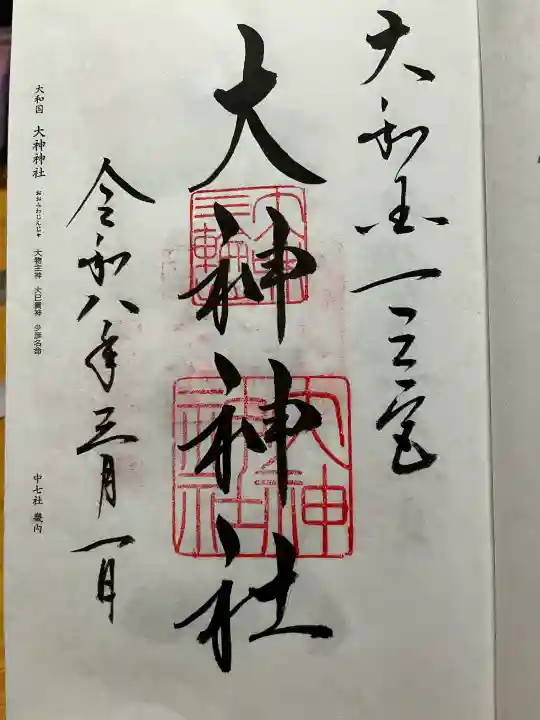 大和国一之宮
大神神社
三輪
大神
神社
令和八年三月一日
大和国 大神神社 おおみわじんじゃ 大物主神 大己貴神 少彦名命
中七社 畿内